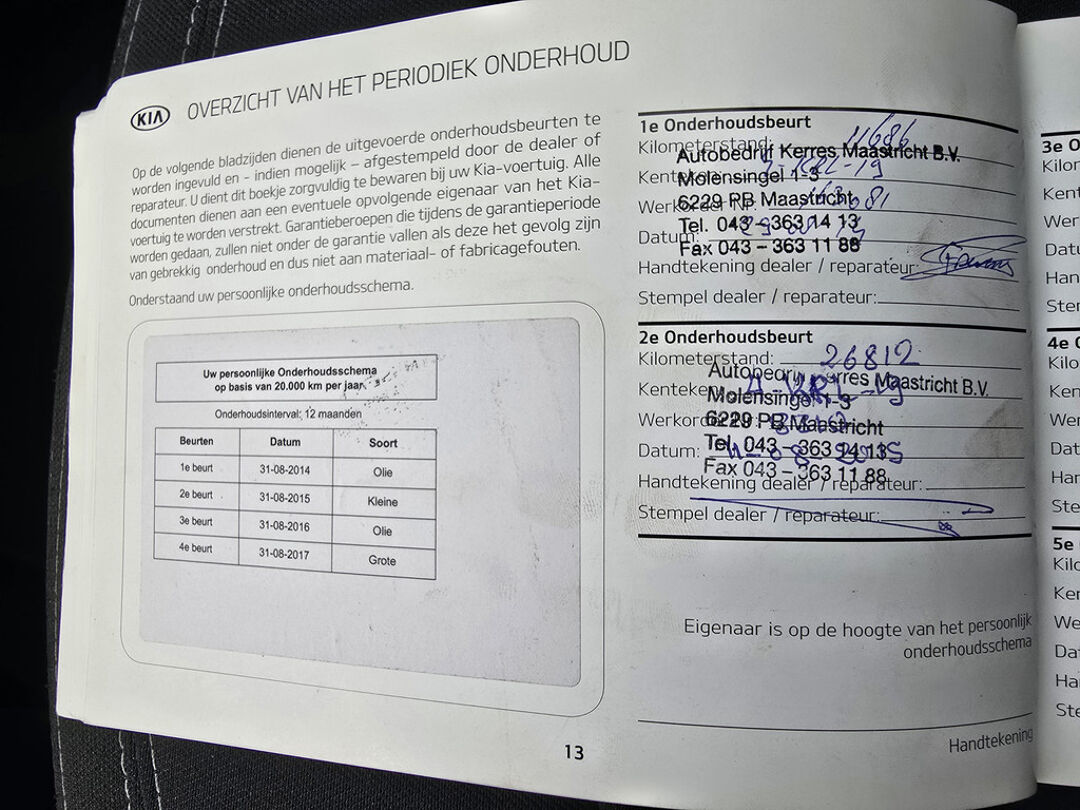 KIA OVERZICHT VAN HET PERIODIEK ONDERHOUD
Op de volgende bladzijden dienen de uitgevoerde onderhoudsbeurten te
worden ingevuld en - indien mogelijk – afgestempeld door de dealer of
reparateur. U dient dit boekje zorgvuldig te bewaren bij uw Kia-voertuig. Alle
documenten dienen aan een eventuele opvolgende eigenaar van het Kia-
voertuig te worden verstrekt. Garantieberoepen die tijdens de garantieperiode
worden gedaan, zullen niet onder de garantie vallen als deze het gevolg zijn
van gebrekkig onderhoud en dus niet aan materiaal- of fabricagefouten.
Onderstaand uw persoonlijke onderhoudsschema.
Uw persoonlijke Onderhoudsschema
op basis van 20.000 km per jaar
Onderhoudsinterval: 12 maanden
Beurten Datum Soort
1e beurt 31-08-2014 Olie
2e beurt 31-08-2015 Kleine
3e beurt 31-08-2016 Olie
4e beurt 31-08-2017 Grote
1e Onderhoudsbeurt
Kilometerstand: 11686
Autobedrijf Kerres Maastricht B.V.
Molensingel 1-3
6229 PB Maastricht
Tel. 043 – 363 14 13
Datum:
Fax 043 – 363 11 88
Handtekening dealer / reparateur:
Stempel dealer / reparateur:
2e Onderhoudsbeurt
Kilometerstand: 26812
Autobedrijf Kerres Maastricht B.V.
Molensingel 1-3
6229 PB Maastricht
Datum:
Tel. 043 – 363 14 13
Fax 043 – 363 11 88
Handtekening dealer / reparateur:
Stempel dealer / reparateur:
Eigenaar is op de hoogte van het persoonlijk
onderhoudsschema
Handtekening
13
3e O
4e O
5e